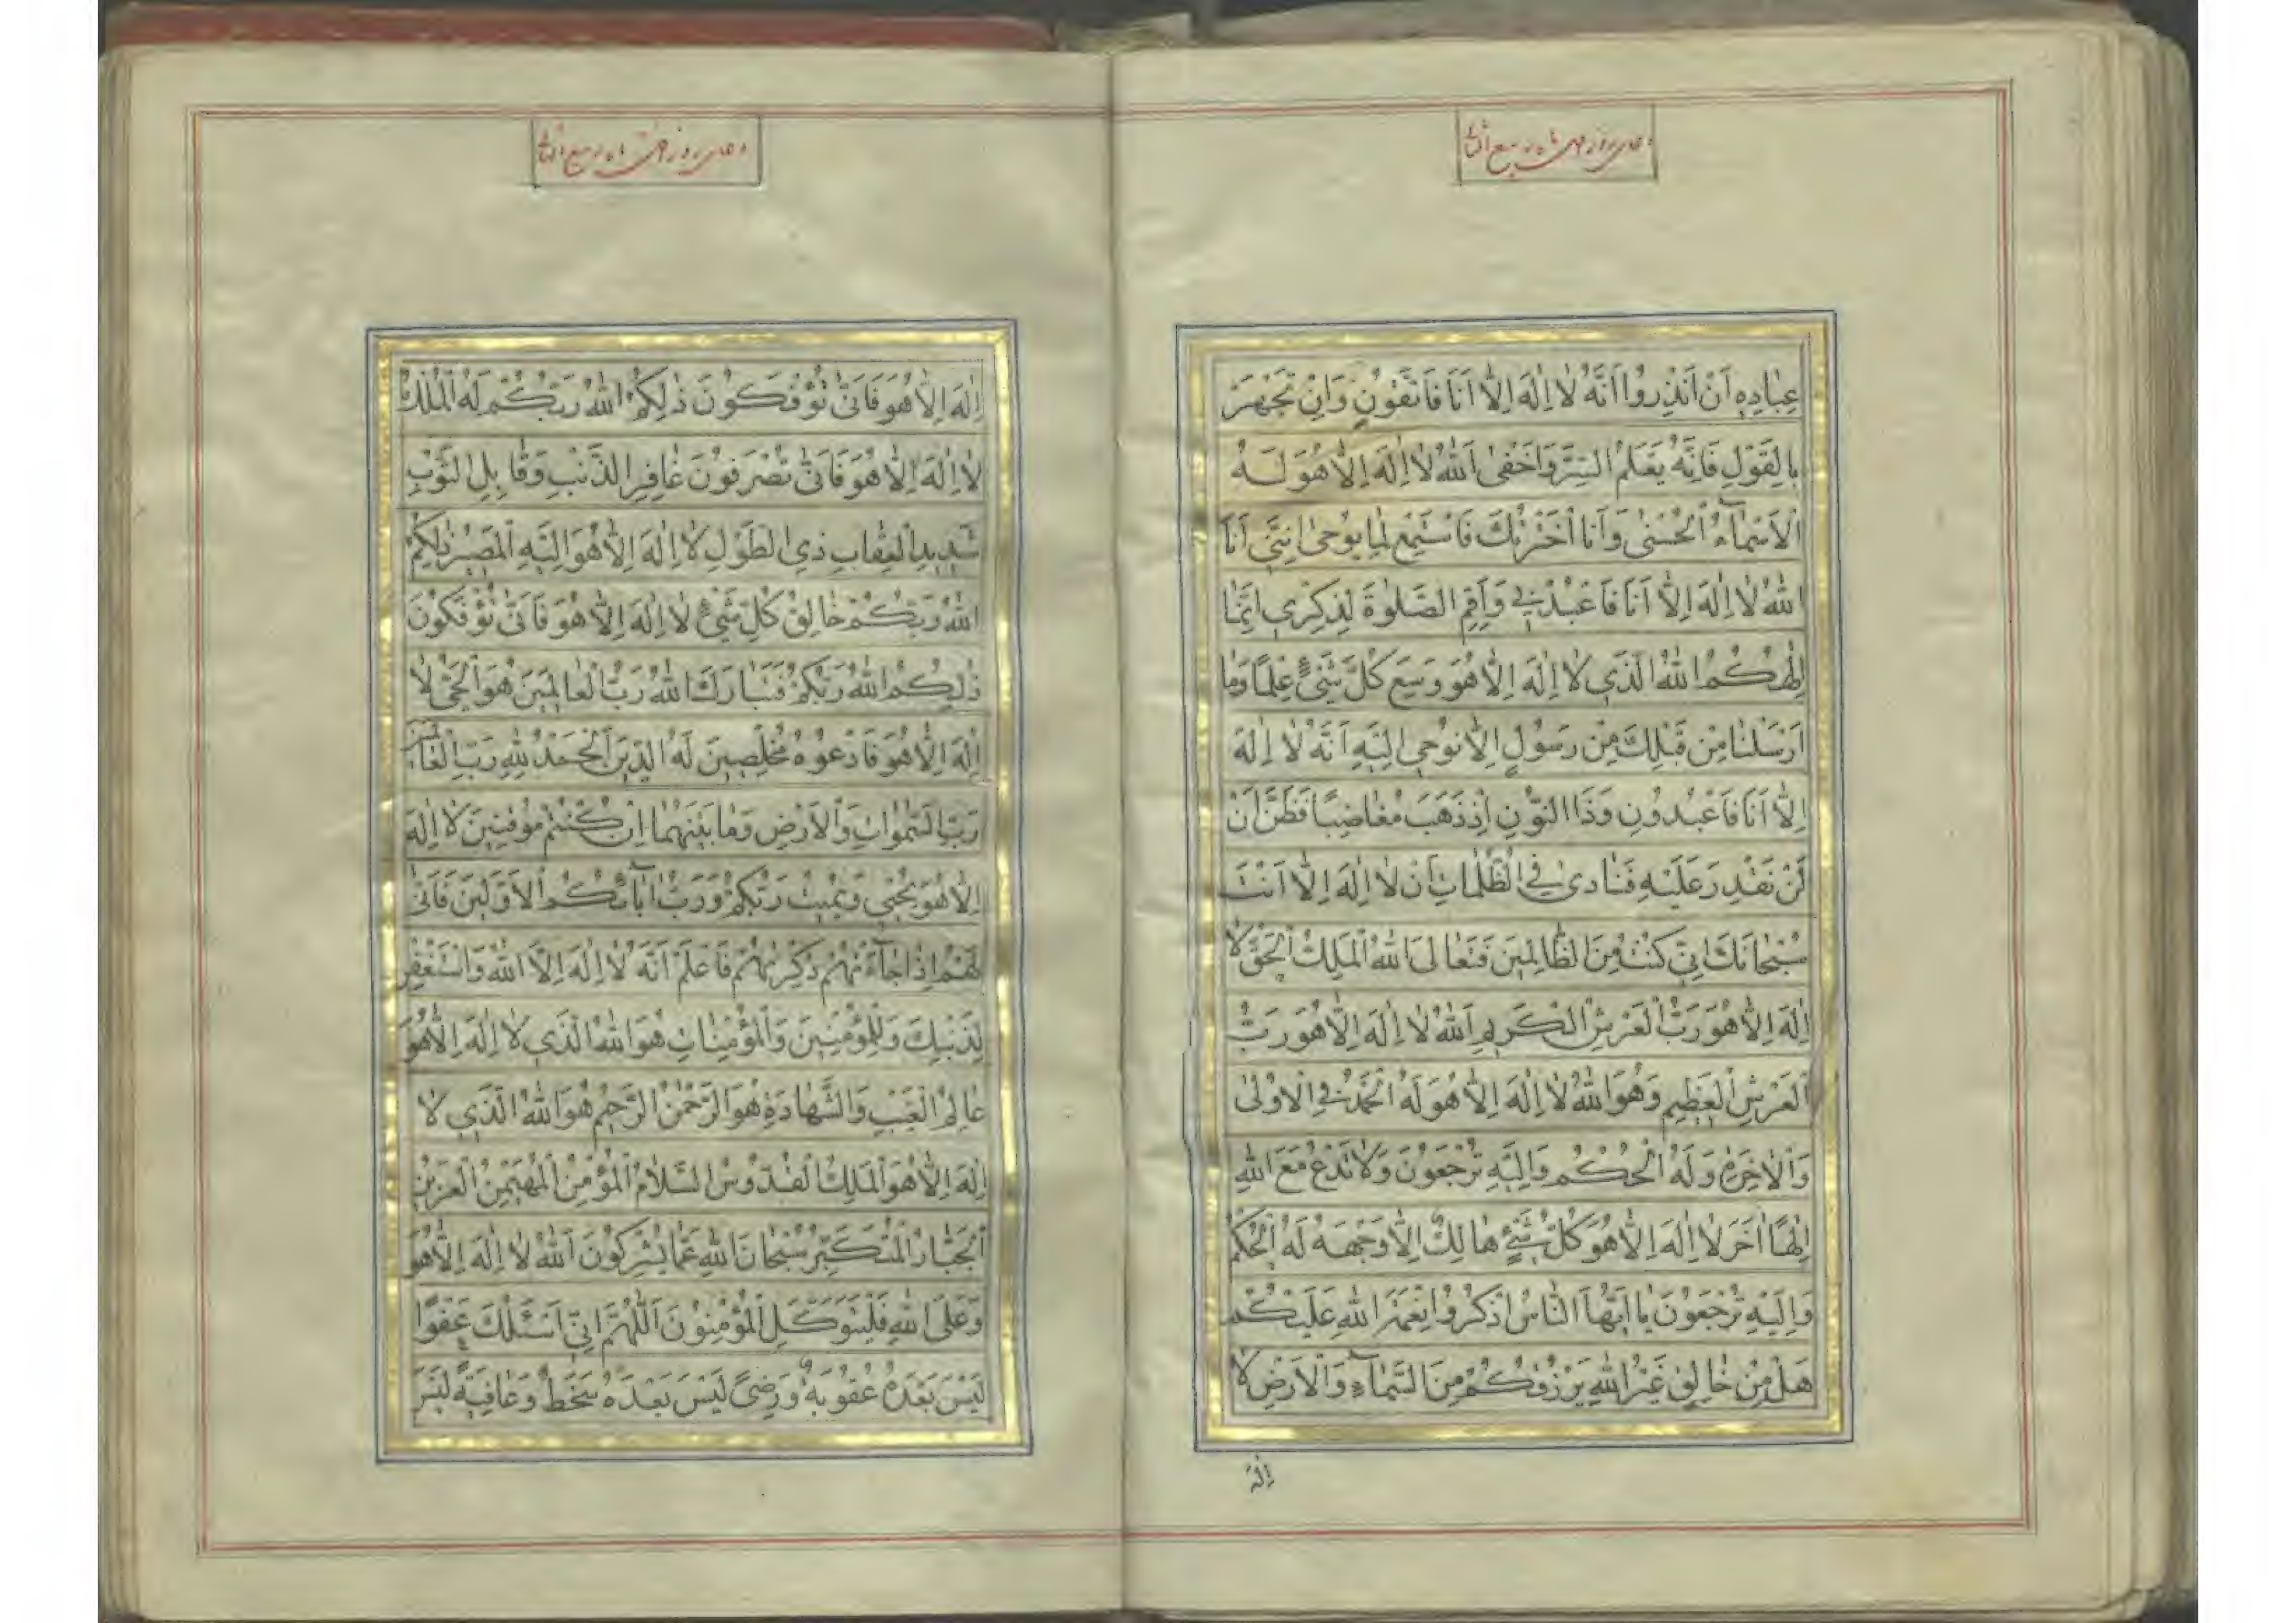 دعای روز ماه ربیع الثانی
عِبَادِهِ اَنْ اَنْذِرُوا اَنَّهُ لَا اِلٰهَ اِلَّا اَنَا فَاتَّقُونِ وَاِنْ تَجْهَرْ
بِالْقَوْلِ فَاِنَّهُ يَعْلَمُ السِّرَّ وَاَخْفٰى اَللّٰهُ لَا اِلٰهَ اِلَّا هُوَ لَهُ
الْاَسْمَآءُ الْحُسْنٰى وَاَنَا اخْتَرْتُكَ فَاسْتَمِعْ لِمَا يُوحٰى اِنَّنِي اَنَا
اللّٰهُ لَا اِلٰهَ اِلَّا اَنَا فَاعْبُدْنِي وَاَقِمِ الصَّلٰوةَ لِذِكْرِي اِنَّمَا
اِلٰهُكُمُ اللّٰهُ الَّذِي لَا اِلٰهَ اِلَّا هُوَ وَسِعَ كُلَّ شَيْءٍ عِلْمًا وَمَا
اَرْسَلْنَا مِنْ قَبْلِكَ مِنْ رَسُولٍ اِلَّا نُوحِي اِلَيْهِ اَنَّهُ لَا اِلٰهَ
اِلَّا اَنَا فَاعْبُدُونِ وَذَا النُّونِ اِذْ ذَهَبَ مُغَاضِبًا فَظَنَّ اَنْ
لَنْ نَقْدِرَ عَلَيْهِ فَنَادٰى فِي الظُّلُمَاتِ اَنْ لَا اِلٰهَ اِلَّا اَنْتَ
سُبْحَانَكَ اِنِّي كُنْتُ مِنَ الظَّالِمِينَ فَتَعَالَى اللّٰهُ الْمَلِكُ الْحَقُّ لَا
اِلٰهَ اِلَّا هُوَ رَبُّ الْعَرْشِ الْكَرِيمِ اَللّٰهُ لَا اِلٰهَ اِلَّا هُوَ رَبُّ
الْعَرْشِ الْعَظِيمِ وَهُوَ اللّٰهُ لَا اِلٰهَ اِلَّا هُوَ لَهُ الْحَمْدُ فِي الْاُولٰى
وَالْاٰخِرَةِ وَلَهُ الْحُكْمُ وَاِلَيْهِ تُرْجَعُونَ وَلَا تَدْعُ مَعَ اللّٰهِ
اِلٰهًا اٰخَرَ لَا اِلٰهَ اِلَّا هُوَ كُلُّ شَيْءٍ هَالِكٌ اِلَّا وَجْهَهُ لَهُ الْحُكْمُ
وَاِلَيْهِ تُرْجَعُونَ يَا اَيُّهَا النَّاسُ اذْكُرُوا نِعْمَةَ اللّٰهِ عَلَيْكُمْ
هَلْ مِنْ خَالِقٍ غَيْرُ اللّٰهِ يَرْزُقُكُمْ مِنَ السَّمَآءِ وَالْاَرْضِ لَا
اِلٰهَ
دعای روز ماه ربیع الثانی
اِلٰهَ اِلَّا هُوَ فَاَنّٰى تُؤْفَكُونَ ذٰلِكُمُ اللّٰهُ رَبُّكُمْ لَهُ الْمُلْكُ
لَا اِلٰهَ اِلَّا هُوَ فَاَنّٰى تُصْرَفُونَ غَافِرِ الذَّنْبِ وَقَابِلِ التَّوْبِ
شَدِيدِ الْعِقَابِ ذِي الطَّوْلِ لَا اِلٰهَ اِلَّا هُوَ اِلَيْهِ الْمَصِيرُ ذٰلِكُمُ
اللّٰهُ رَبُّكُمْ خَالِقُ كُلِّ شَيْءٍ لَا اِلٰهَ اِلَّا هُوَ فَاَنّٰى تُؤْفَكُونَ
ذٰلِكُمُ اللّٰهُ رَبُّكُمْ فَتَبَارَكَ اللّٰهُ رَبُّ الْعَالَمِينَ هُوَ الْحَيُّ لَا
اِلٰهَ اِلَّا هُوَ فَادْعُوهُ مُخْلِصِينَ لَهُ الدِّينَ اَلْحَمْدُ لِلّٰهِ رَبِّ الْعَالَمِينَ
رَبِّ السَّمٰوَاتِ وَالْاَرْضِ وَمَا بَيْنَهُمَا اِنْ كُنْتُمْ مُوقِنِينَ لَا اِلٰهَ
اِلَّا هُوَ يُحْيِي وَيُمِيتُ رَبُّكُمْ وَرَبُّ اٰبَآئِكُمُ الْاَوَّلِينَ فَاَنّٰى
لَهُمْ اِذَا جَآءَتْهُمْ ذِكْرٰيهُمْ فَاعْلَمْ اَنَّهُ لَا اِلٰهَ اِلَّا اللّٰهُ وَاسْتَغْفِرْ
لِذَنْبِكَ وَلِلْمُؤْمِنِينَ وَالْمُؤْمِنَاتِ هُوَ اللّٰهُ الَّذِي لَا اِلٰهَ اِلَّا هُوَ
عَالِمُ الْغَيْبِ وَالشَّهَادَةِ هُوَ الرَّحْمٰنُ الرَّحِيمُ هُوَ اللّٰهُ الَّذِي لَا
اِلٰهَ اِلَّا هُوَ الْمَلِكُ الْقُدُّوسُ السَّلَامُ الْمُؤْمِنُ الْمُهَيْمِنُ الْعَزِيزُ
الْجَبَّارُ الْمُتَكَبِّرُ سُبْحَانَ اللّٰهِ عَمَّا يُشْرِكُونَ اَللّٰهُ لَا اِلٰهَ اِلَّا هُوَ
وَعَلَى اللّٰهِ فَلْيَتَوَكَّلِ الْمُؤْمِنُونَ اَللّٰهُمَّ اِنِّي اَسْئَلُكَ عَفْوًا
لَيْسَ بَعْدَهُ عُقُوبَةٌ وَرِضًى لَيْسَ بَعْدَهُ سَخَطٌ وَعَافِيَةً لَيْسَ